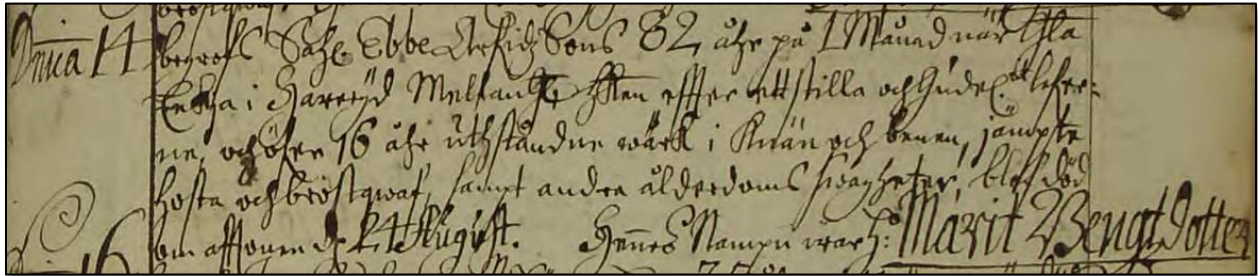 Dnica 14 begrofs Sahl Ebbe Arfidz Sons 82 åhr på 1 Månad när gla
Enkia i Hareryd Mellan efter ett stilla och Gudel. lefwer-
ne, och öfer 16 åhr uthståndne wärk i Knän och benen, jämpte
hosta och bröstqwaf, sampt andra ålderdoms swagheter, blef död
om afftonen d. 24 August. Hennes Nampn war H: Märit Bengtzdotter